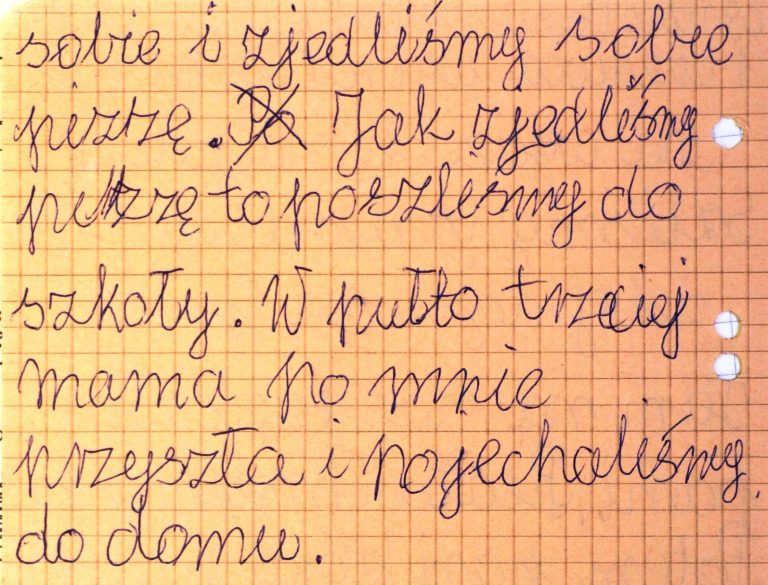 sobie i zjedliśmy sobie
pizzę. Jak zjedliśmy
pizzę to poszliśmy do
szkoły. W pułto trzeciej
mama po mnie
przyszła i pojechaliśmy
do domu.